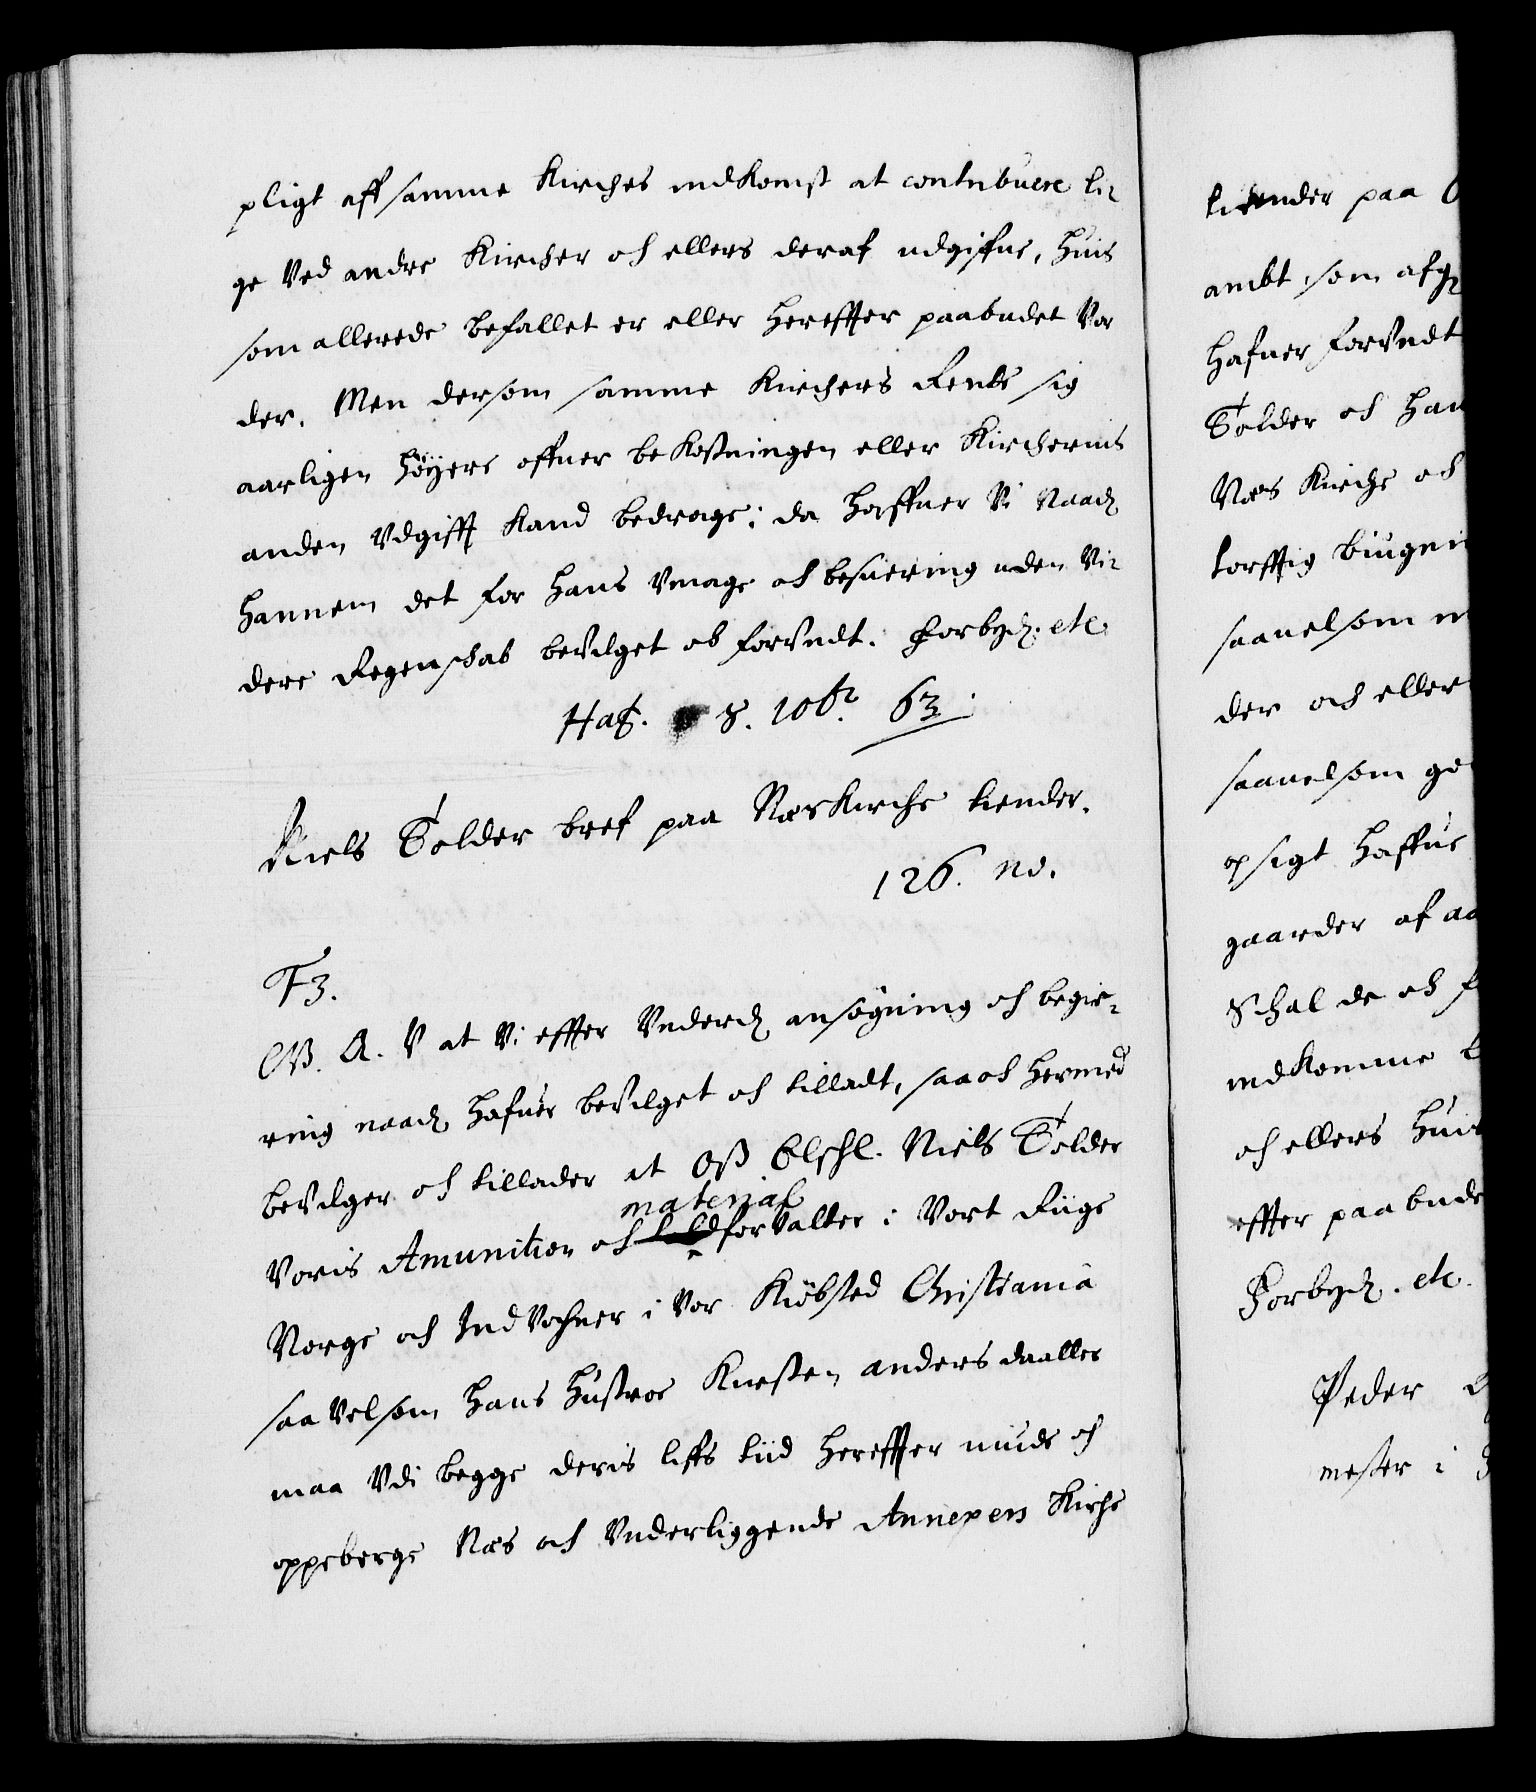 pligt aff samme Kirches indkomst at contribuere li-
ge Ved andre Kircher och ellers deraf udgifue, huis
som allerede befallet er eller herefter paabudet Vor
der. Men dersom samme Kirchers Rente sig
aarligen höyere offuer bekostningen eller Kirchernis
anden Vdgifft kand bedrage; da haffuer Vi Naad
hannem det for hans Vmage och besuering uden Vi-
dere Regenschab beVilget och forVndt. Forbyd. etc
Haf. 8. 10br. 63.
Niels Tolder bref paa Næs Kirche tiender.
126. no.
F3.
G. A. V at Vi effter Vnderd ansögning och begie-
ring naad hafuer beVilget och tilladt, saa och hermed
beVilger och tillader at Oß Elschl. Niels Tolder
material
Voris Amunition och forValter i Vort Riige
Norge och IndVohner i Vor Kiöbsted Christiania
saa Velsom hans hustroe Kirsten anders daatter
maa Vdi begge deris lifs tiid herefter niude och
oppeberge Næs och Vnderliggende Annexers Kirche
tiender paa
ambt som afg
hafuer forVndt
Tolder och han
Næs Kirche och
torfftig
saauelsom
der och eller
saauelsom
opsigt haffue
gaarder af
Schal de och
indkomme
och ellers huis
effter paabude
Forbyd. etc.
Peder
mester i